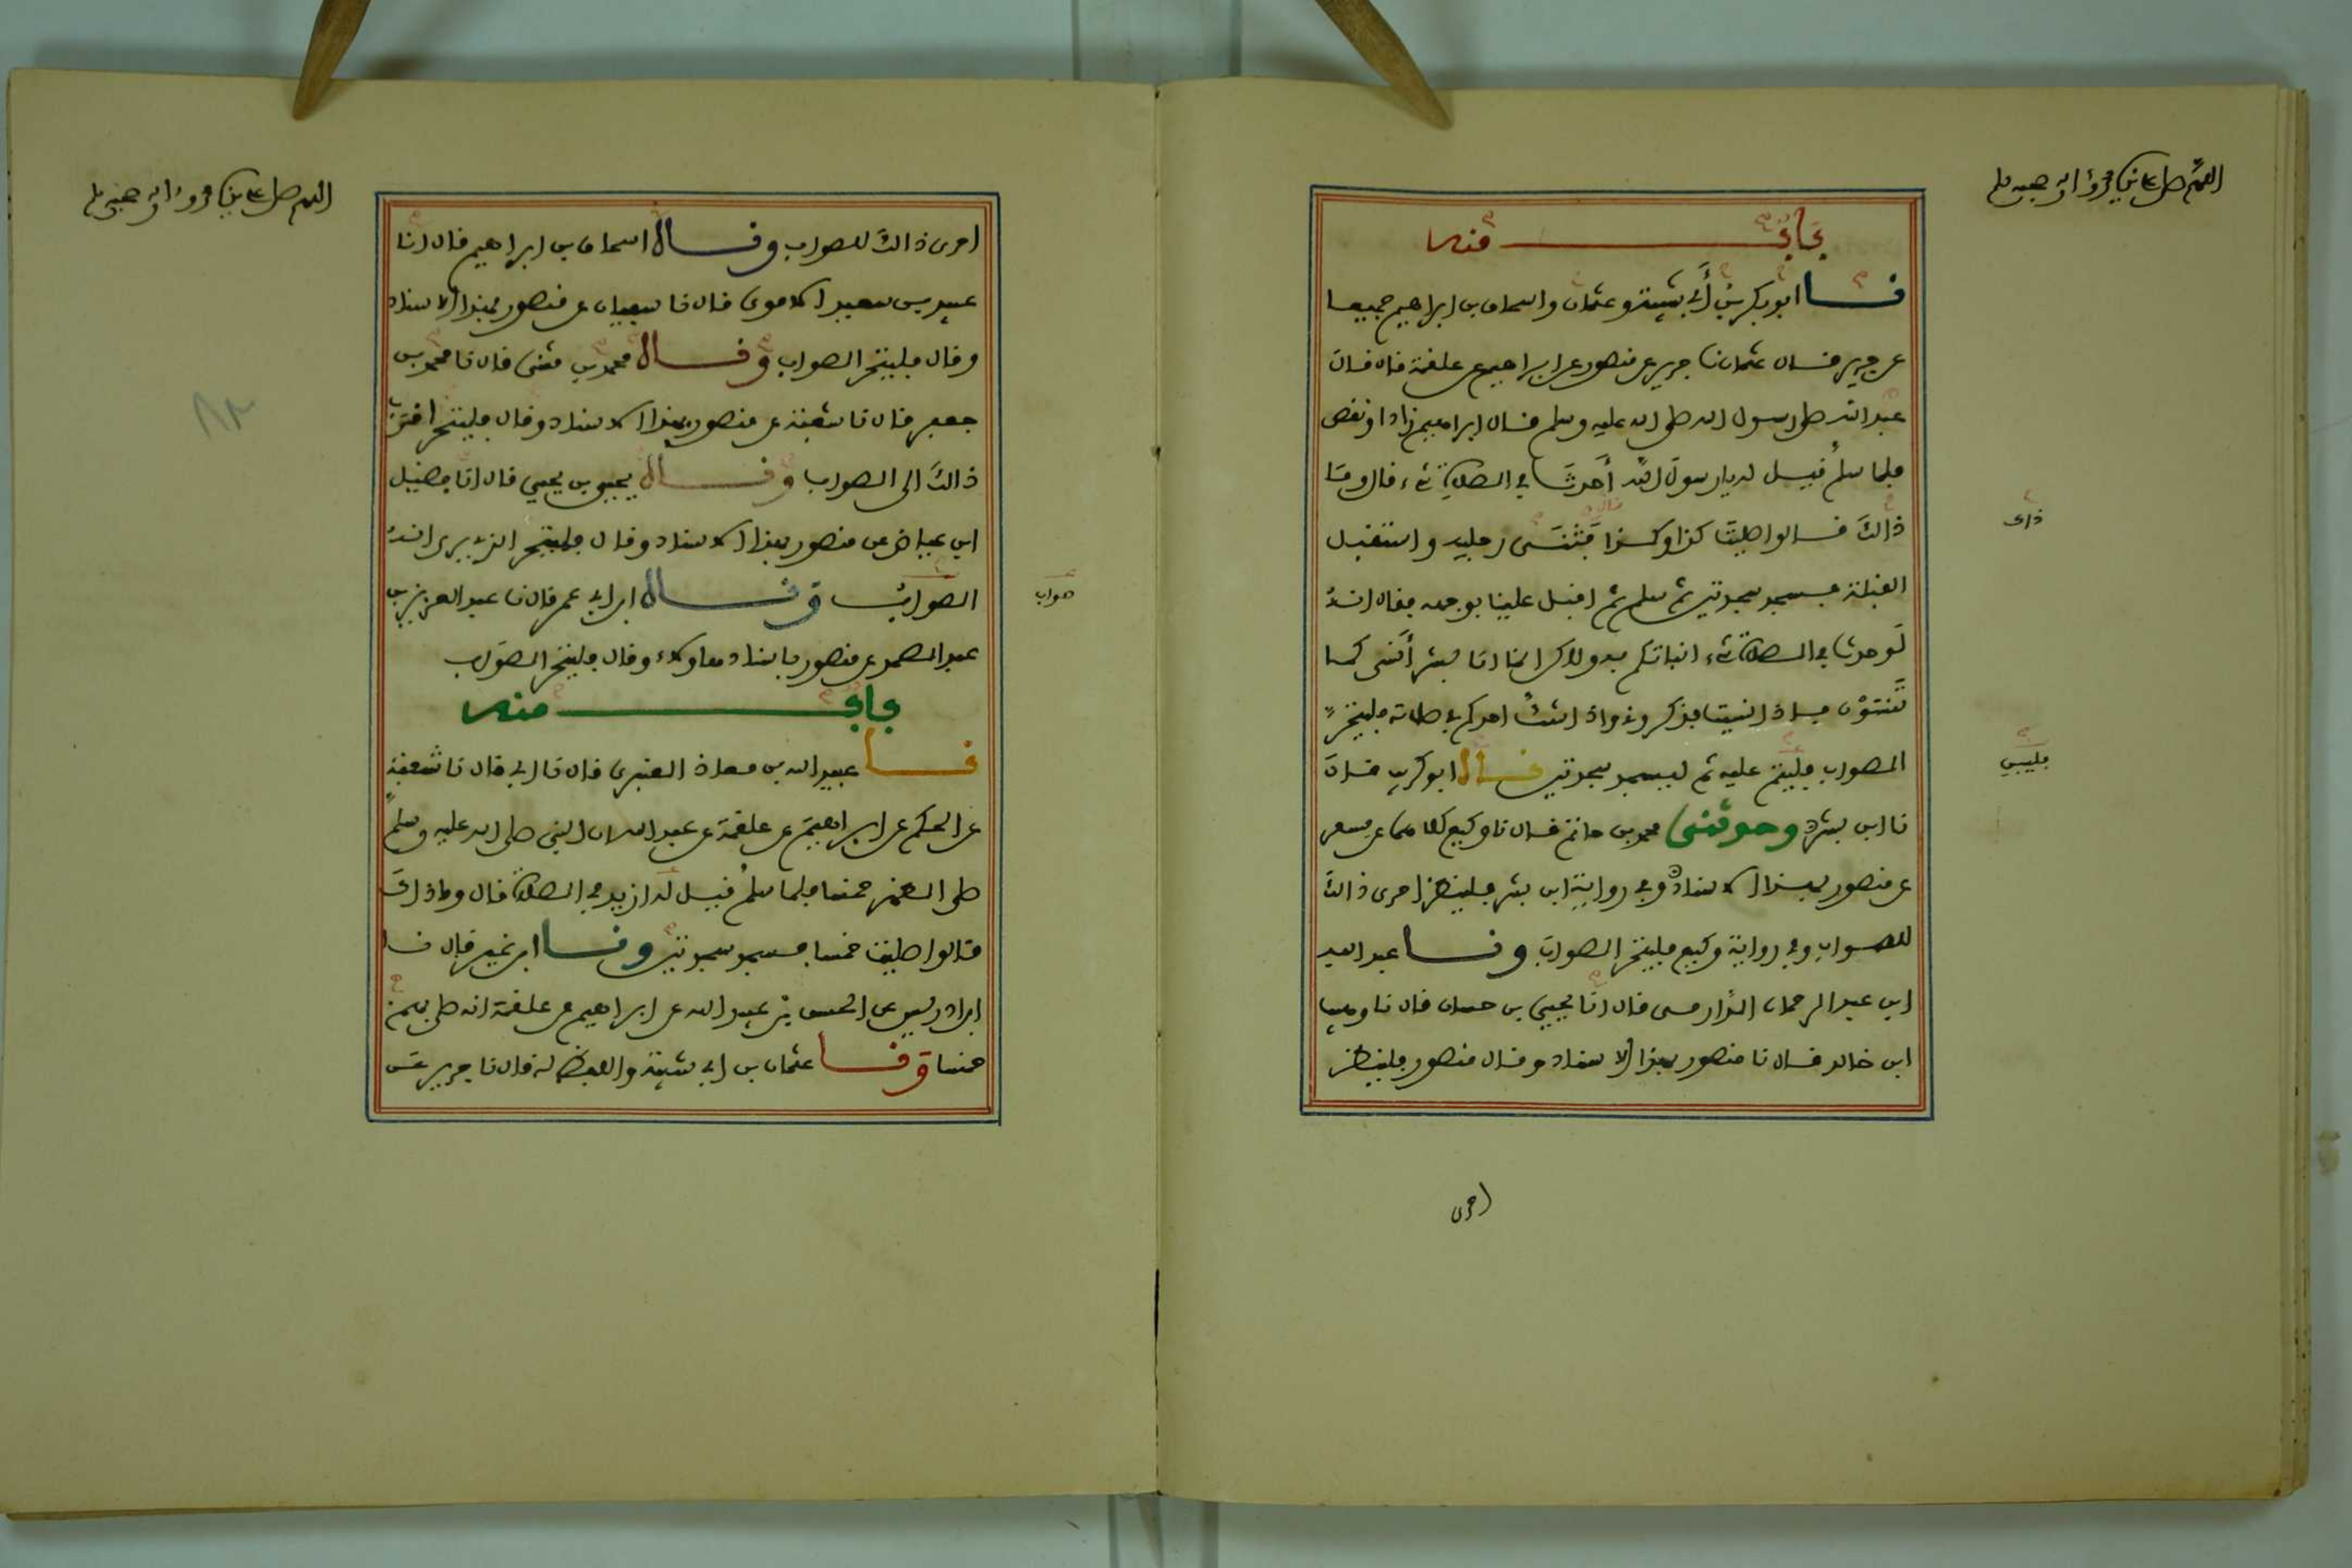 باب منه
نا ابو بكر بن أبي شيبة وعثمان واسحاق بن ابراهيم جميعا
عن جرير قال عثمان نا جرير عن منصور عن ابراهيم عن علقمة قال قال
عبد الله صلى رسول الله صلى الله عليه وسلم قال ابراهيم زاد او نقص
فلما سلم قيل له يا رسول الله أحدث في الصلاة شيء قال وما
ذالك قالوا صليت كذا وكذا قال فثنى رجليه واستقبل
القبلة فسجد سجدتين ثم سلم ثم اقبل علينا بوجهه فقال انه
لو حدث في الصلاة شيء انباتكم به ولاكن انما انا بشر أنسى كما
تنسون فاذا نسيت فذكروني واذا شك احدكم في صلاته فليتحر
الصواب فليتم عليه ثم ليسجد سجدتين قال ابو كريب قال
نا ابن بشر وحدثني محمد بن حاتم قال نا وكيع كلاهما عن مسعر
عن منصور بهذا الاسناد وفي رواية ابن بشر فلينظر احرى ذالك
للصواب وفي رواية وكيع فليتحر الصواب ونا عبد الله
ابن عبد الرحمان الدارمي قال انا يحيى بن حسان قال نا وهيب
ابن خالد قال نا منصور بهذا الاسناد وقال منصور فلينظر
احرى
ذاك
صواب
احرى ذالك للصواب وقال اسحاق بن ابراهيم قال انا
عبيد بن سعيد الاموي قال نا سفيان عن منصور بهذا الاسناد
وقال فليتحر الصواب وقال محمد بن مثنى قال نا محمد بن
جعفر قال نا شعبة عن منصور بهذا الاسناد وقال فليتحر اقرب
ذالك الى الصواب وقال يحيى بن يحيى قال انا فضيل
ابن عياض عن منصور بهذا الاسناد وقال فليتحر الذي يرى انه
الصواب وقال ابن ابي عمر قال نا عبد العزيز بن
عبد الصمد عن منصور باسناد هاولاء وقال فليتحر الصواب
باب منه
نا عبيد الله بن معاذ العنبري قال نا ابي قال نا شعبة
عن الحكم عن ابراهيم عن علقمة عن عبد الله ان النبي صلى الله عليه وسلم
صلى الظهر خمسا فلما سلم قيل له ازيد في الصلاة قال وما ذاك
قالوا صليت خمسا فسجد سجدتين ونا ابن نمير قال نا
ابن ادريس عن الحسن بن عبيد الله عن ابراهيم عن علقمة انه صلى بهم
خمسا ونا عثمان بن ابي شيبة واللفظ له قال نا جرير عن
٨٢